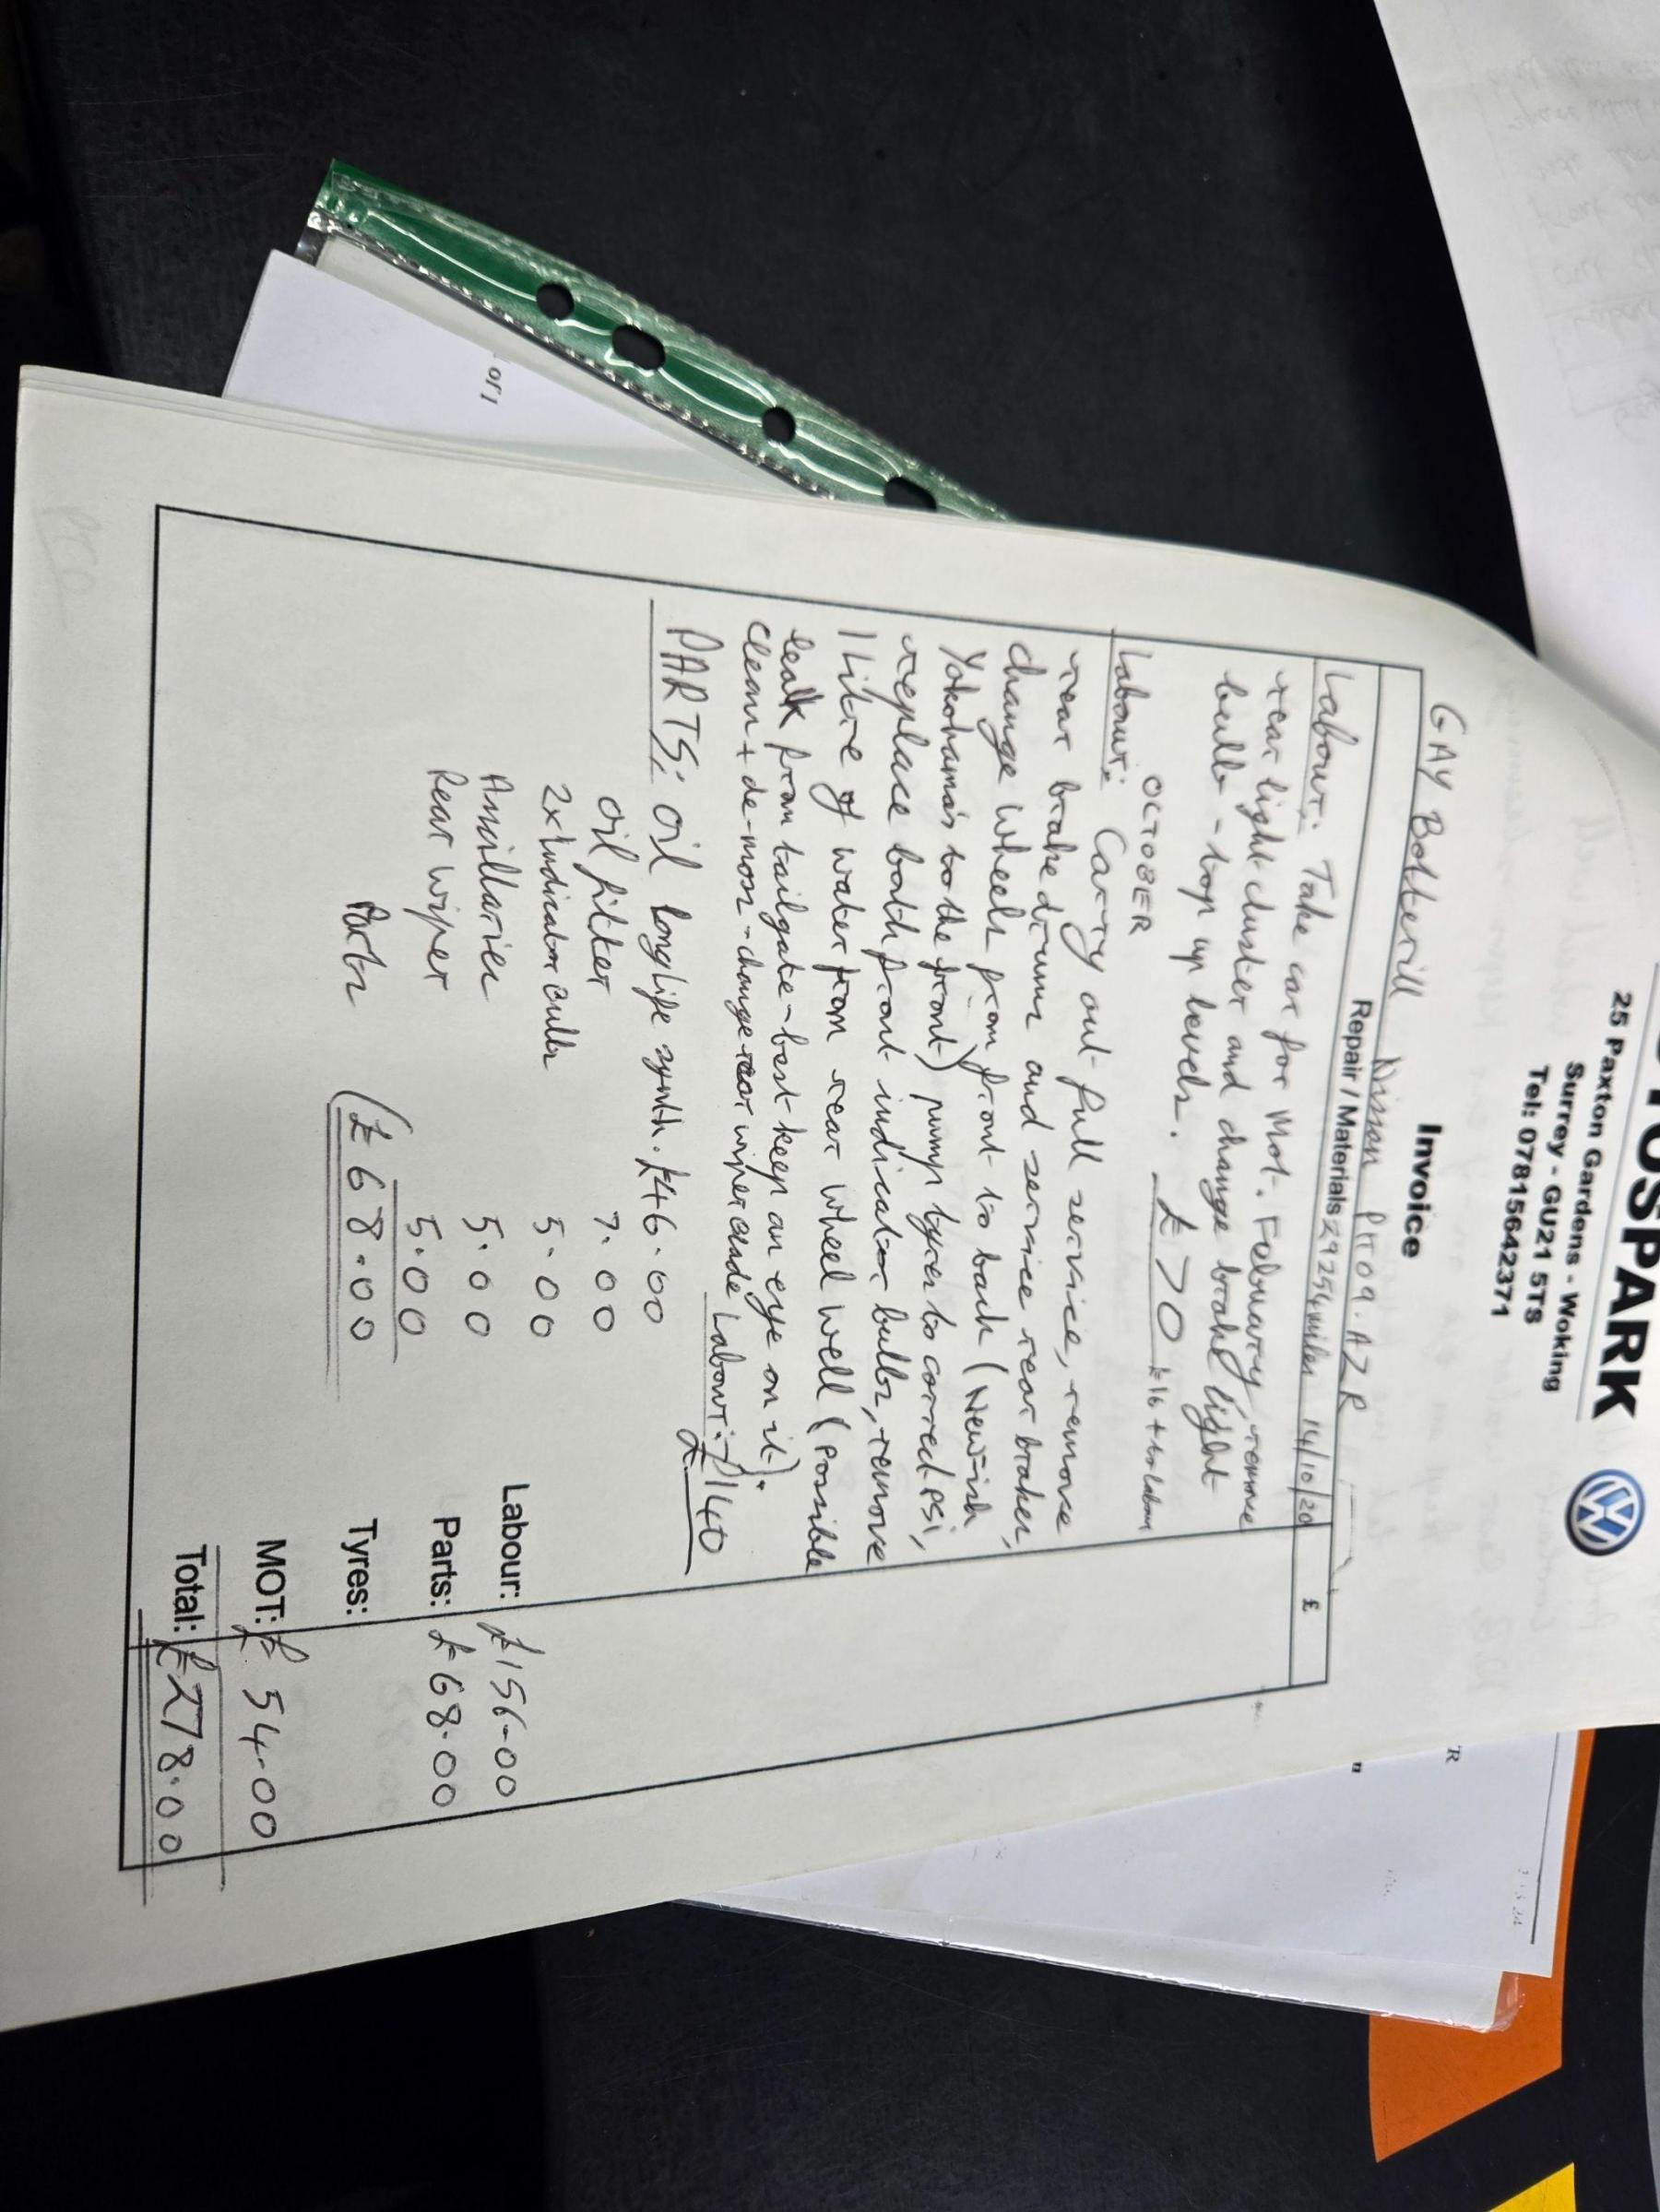 OSPARK
25 Paxton Gardens - Woking
Surrey - GU21 5TS
Tel: 07815642371
Invoice
GAY Botterill Nissan PH09.AZR
Repair / Materials 29254 miles 14/10/20 £
Labour: Take car for Mot. Febuary remove
rear light cluster and change brake light
bulb - top up levels. £70
OCTOBER
Labour: Carry out full service, remove
rear brake drums and service rear brakes,
change wheels from front to back (Newish
Yokohamas to the front) pump tyres to correct PSI,
replace both front indicator bulbs, remove
1 Litre of water from rear wheel well (possible
leak from tailgate - best keep an eye on it).
clean + de-moss - change rear wiper blade Labour: £140
PARTS: oil longlife synth. £46.00
oil filter 7.00
2x Indicator Bulbs 5.00
Ansillaries 5.00
Rear wiper 5.00
Parts (£68.00
Labour: £156-00
Parts: £68.00
Tyres:
MOT: £54.00
Total: £278.00